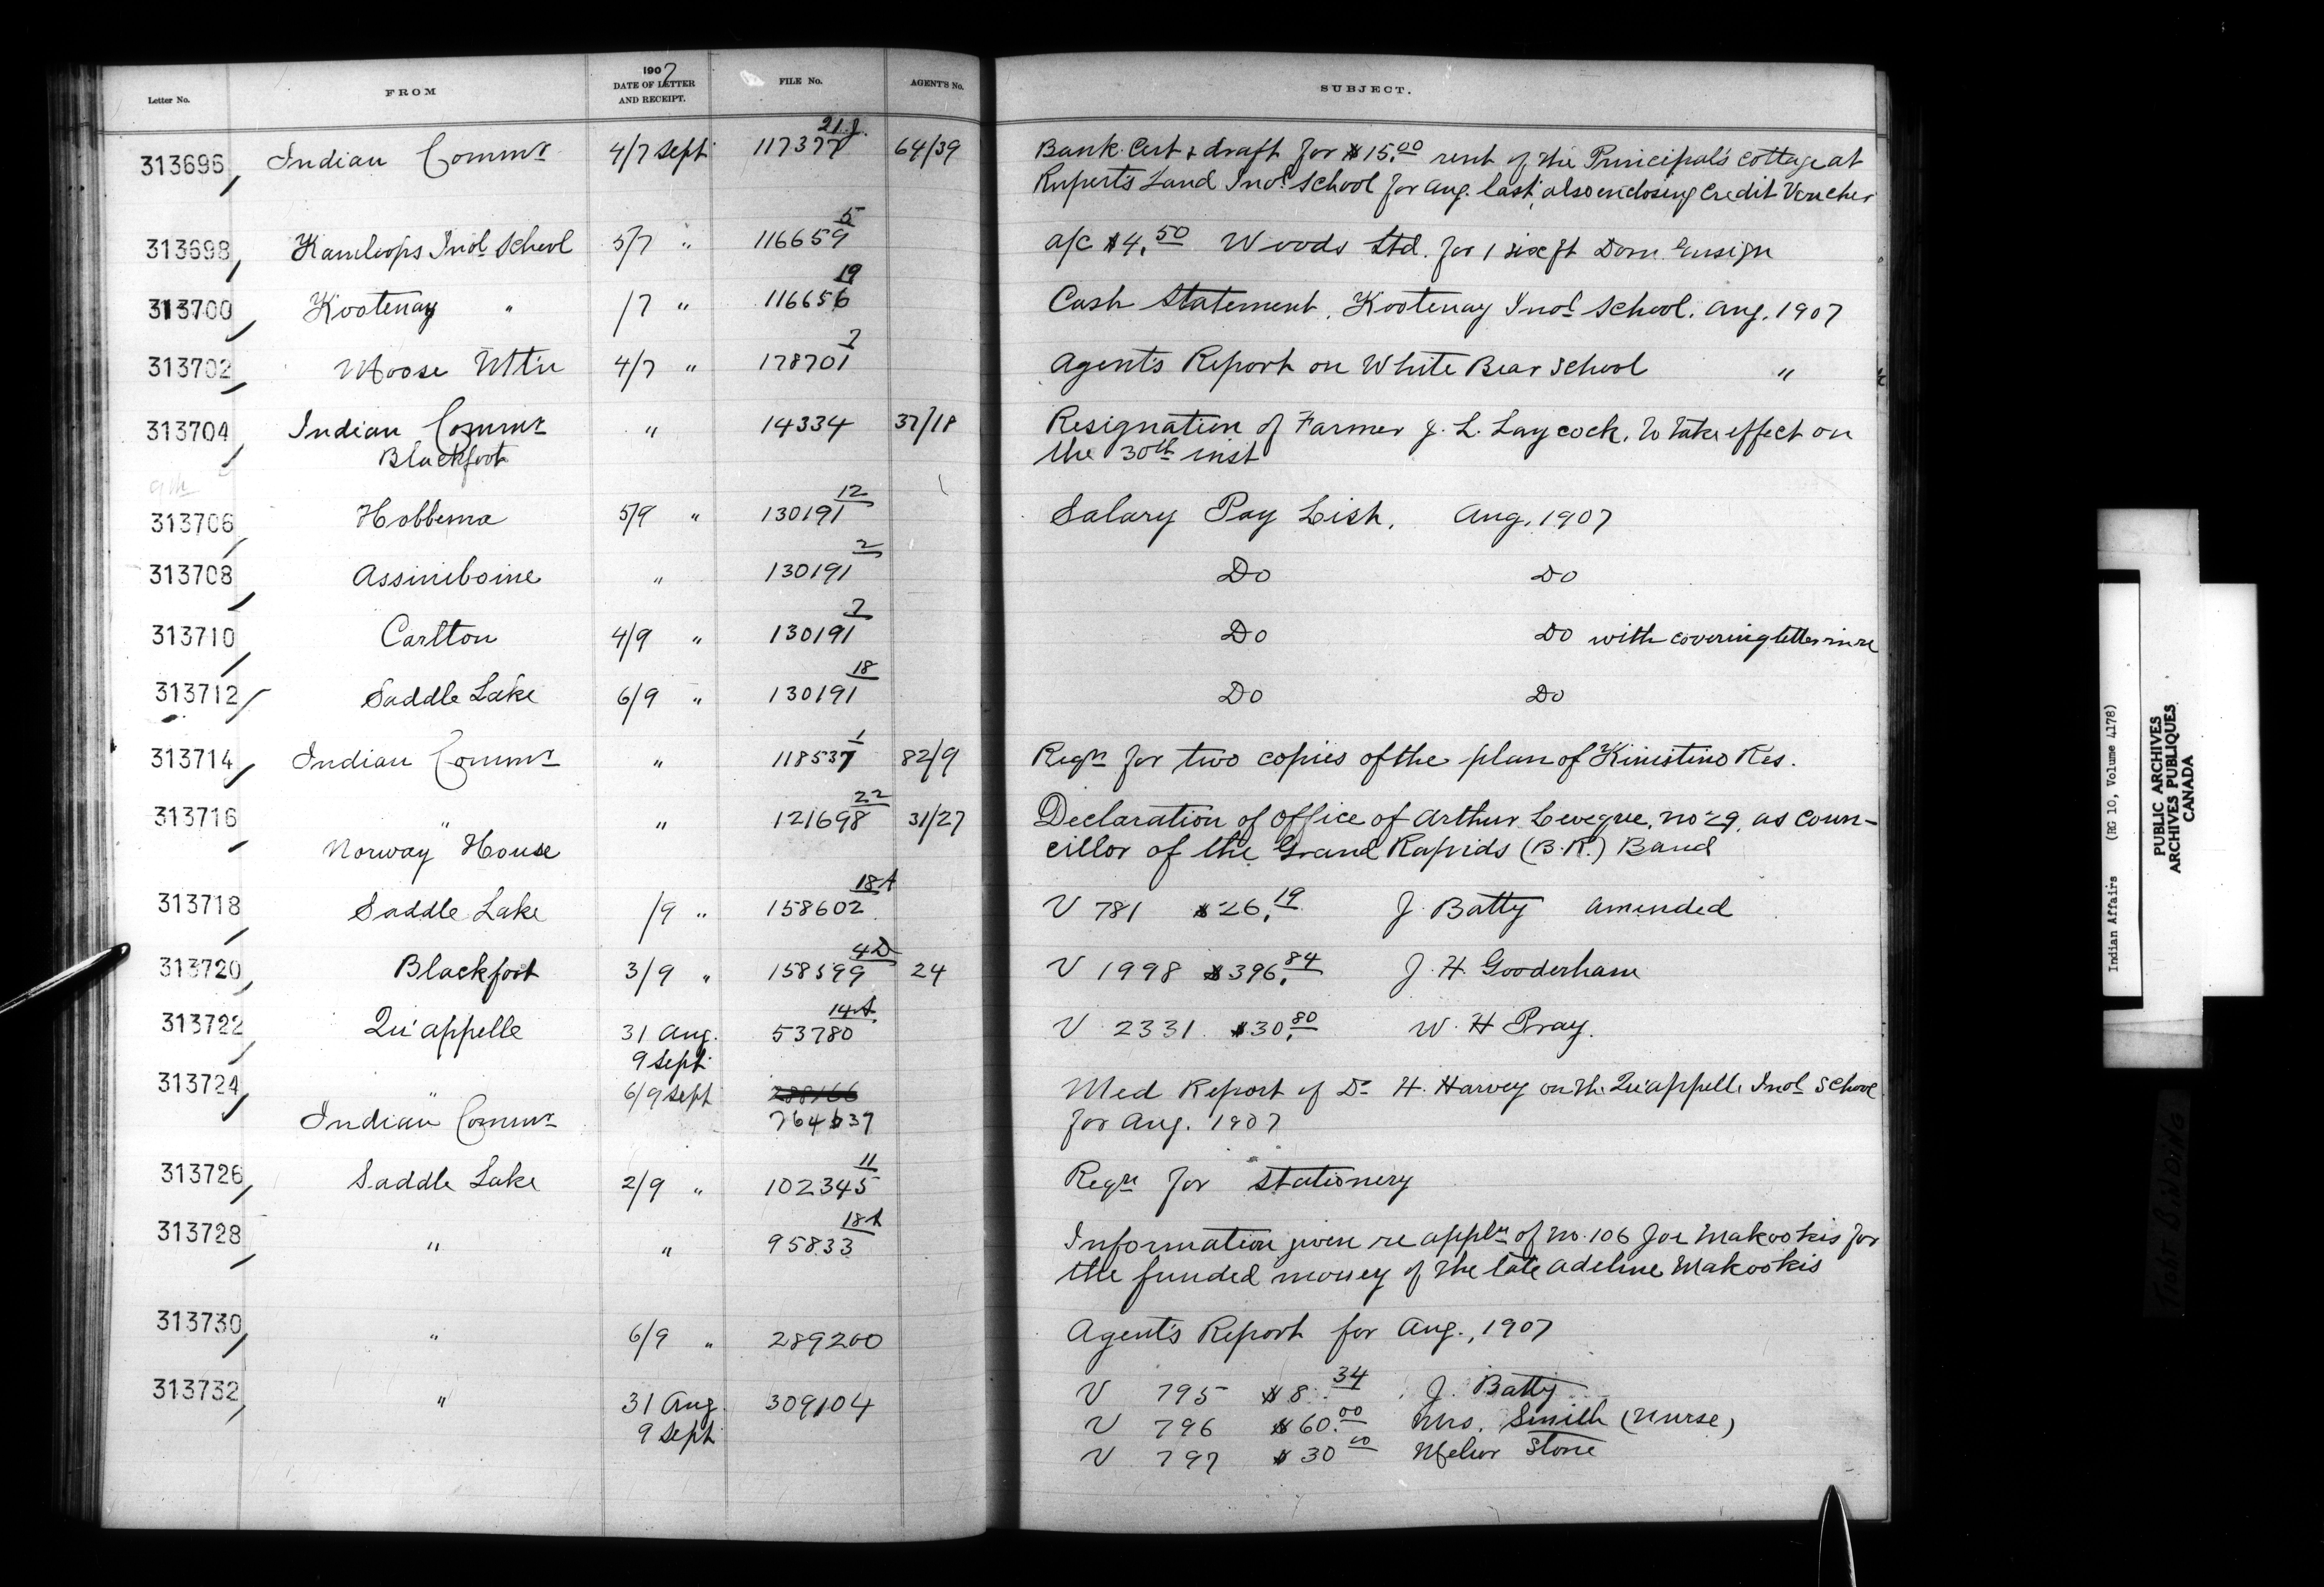 Letter No. FROM 1907 DATE OF LETTER AND RECEIPT. FILE No. AGENT'S No. SUBJECT.
313696 Indian Commr 4/7 Sept 117377 21.J. 64/39 Bank Cert & draft for $15.00 rent of the Principal's cottage at
Rupert's Land Indl School for Aug. last, also enclosing Credit Voucher
313698 Kamloops Indl School 5/7 " 116659 5 a/c $4.50 Woods Ltd. for 1 six ft Dom Ensign
313700 Kootenay " /7 " 116656 19 Cash Statement, Kootenay Indl School. Aug. 1907
313702 Moose Mtn 4/7 " 178701 7 Agent's Report on White Bear School "
313704 Indian Commr " 14334 37/18 Resignation of Farmer J. L. Laycock, to take effect on
Blackfoot the 30th inst
9th
313706 Hobbema 5/9 " 130191 12 Salary Pay List, Aug. 1907
313708 Assiniboine " 130191 2 Do Do
313710 Carlton 4/9 " 130191 7 Do Do with covering letter in re
313712 Saddle Lake 6/9 " 130191 18 Do Do
313714 Indian Commr " 118537 1 82/9 Reqn for two copies of the plan of Kinistino Res.
313716 " " 121698 22 31/27 Declaration of Office of Arthur Leveque, no 29, as coun-
Norway House cillor of the Grand Rapids (B.R.) Band
313718 Saddle Lake /9 " 158602 18A V 781 $26.19 J. Batty amended
313720 Blackfoot 3/9 " 158599 4D 24 V 1998 $396.84 J. H. Gooderham
313722 Qu'appelle 31 Aug. 53780 14A V 2331 $30.80 W. H Pray.
9 Sept
313724 " 6/9 Sept 288166 Med Report of Dr H. Harvey on the Qu'appelle Indl School
Indian Commr 764637 for Aug. 1907
313726 Saddle Lake 2/9 " 102345 11 Reqn for Stationery
313728 " " 95833 18A Information given re appln of no. 106 Joe Makookis for
the funded money of the late Adeline Makookis
313730 " 6/9 " 289200 Agent's Report for Aug., 1907
313732 " 31 Aug. 309104 V 795 $8.34 J. Batty
9 Sept V 796 $60.00 Mrs. Smith (Nurse)
V 797 $30.00 Stone
Indian Affairs (RG 10, Volume 4178)
PUBLIC ARCHIVES
ARCHIVES PUBLIQUES
CANADA
TIGHT BINDING